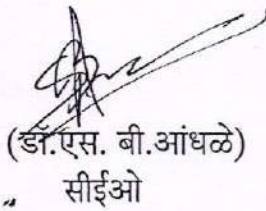 (डॉ.एस. बी.आंधळे)
सीईओ